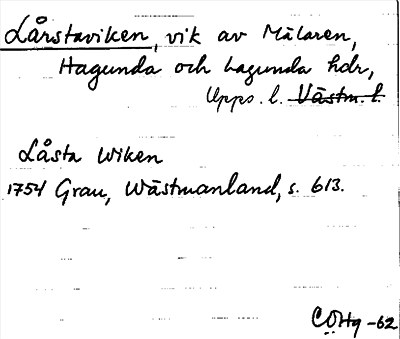 Lårstaviken, vik av Mälaren,
Hagunda och Lagunda hdr,
Upps. l. Västm. l.
Låsta Wiken
1754 Grau, Wästmanland, s. 613.
CÖHg -62